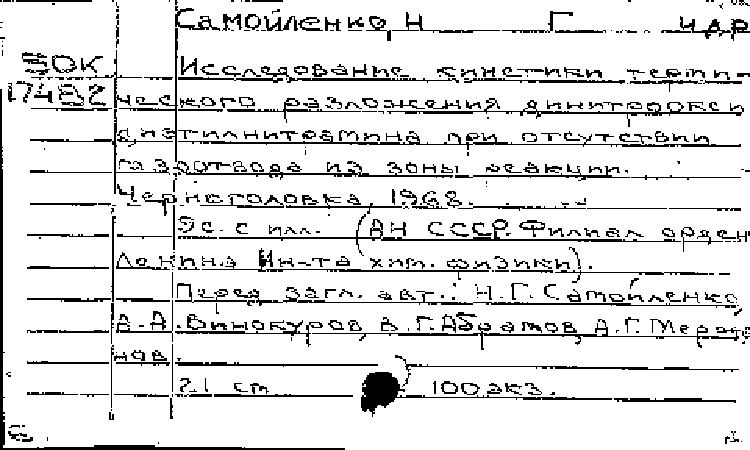 Самойленко, Н Г. и др
ЗОК Исследование кинетики терми-
17482 ческого разложения динитроокси
диэтилнитрамина при отсутствии
газоотвода из зоны реакции.
Черноголовка, 1968.
9 с. с илл. (АН СССР. Филиал орден
Ленина Ин-та хим. физики).
Перед загл. авт.: Н.Г. Самойленко,
В.А. Винокуров, В.Г. Абрамов, А.Г. Мержа
нов.
21 см 100 экз.